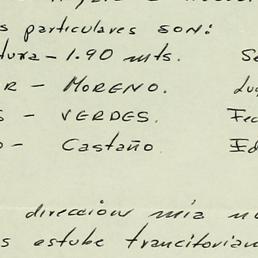 s particulares SON:
tura - 1.90 mts. Se
R - MORENO. Lu
S - VERDES. Fec
O - Castaño. Ed
dirección mía n
s estube trancitorian